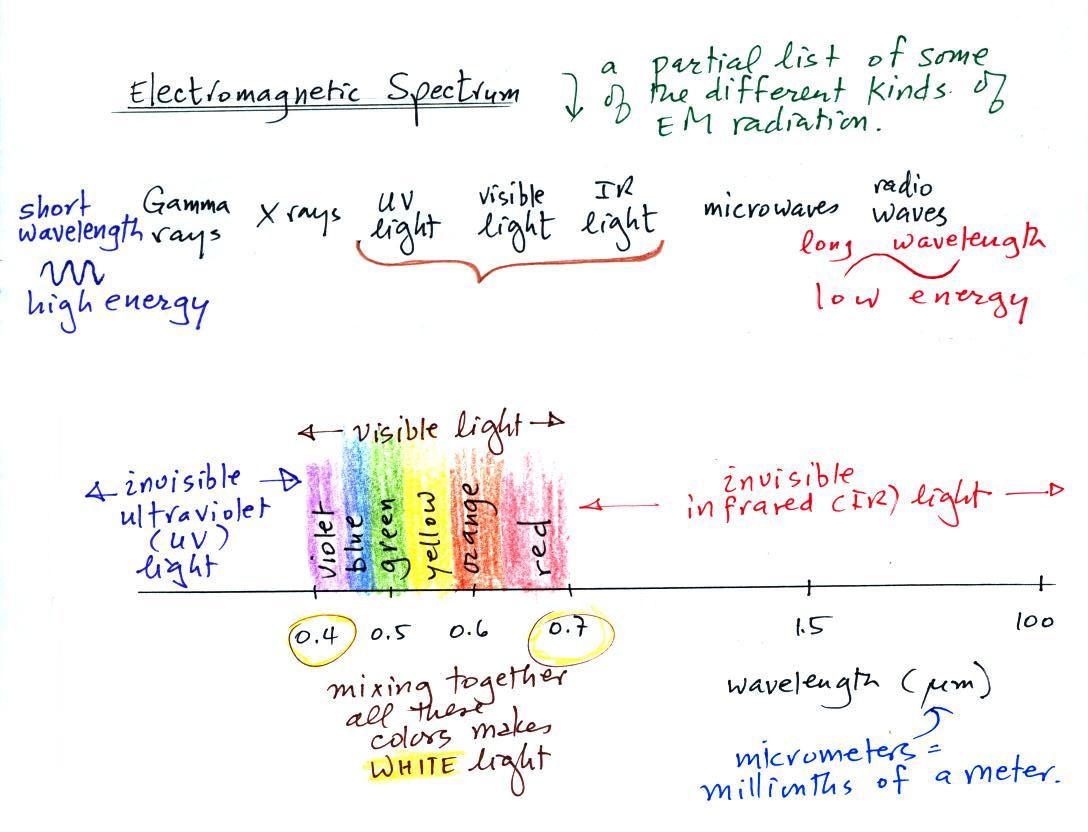 Electromagnetic Spectrum
a partial list of some
of the different kinds of
EM radiation.
short wavelength
high energy
Gamma rays
X rays
UV light
visible light
IR light
microwaves
radio waves
long wavelength
low energy
visible light
invisible
ultraviolet
(UV)
light
violet
blue
green
yellow
orange
red
invisible
infrared (IR) light
0.4 0.5 0.6 0.7 1.5 100
mixing together
all these
colors makes
WHITE light
wavelength (μm)
micrometers =
millionths of a meter.